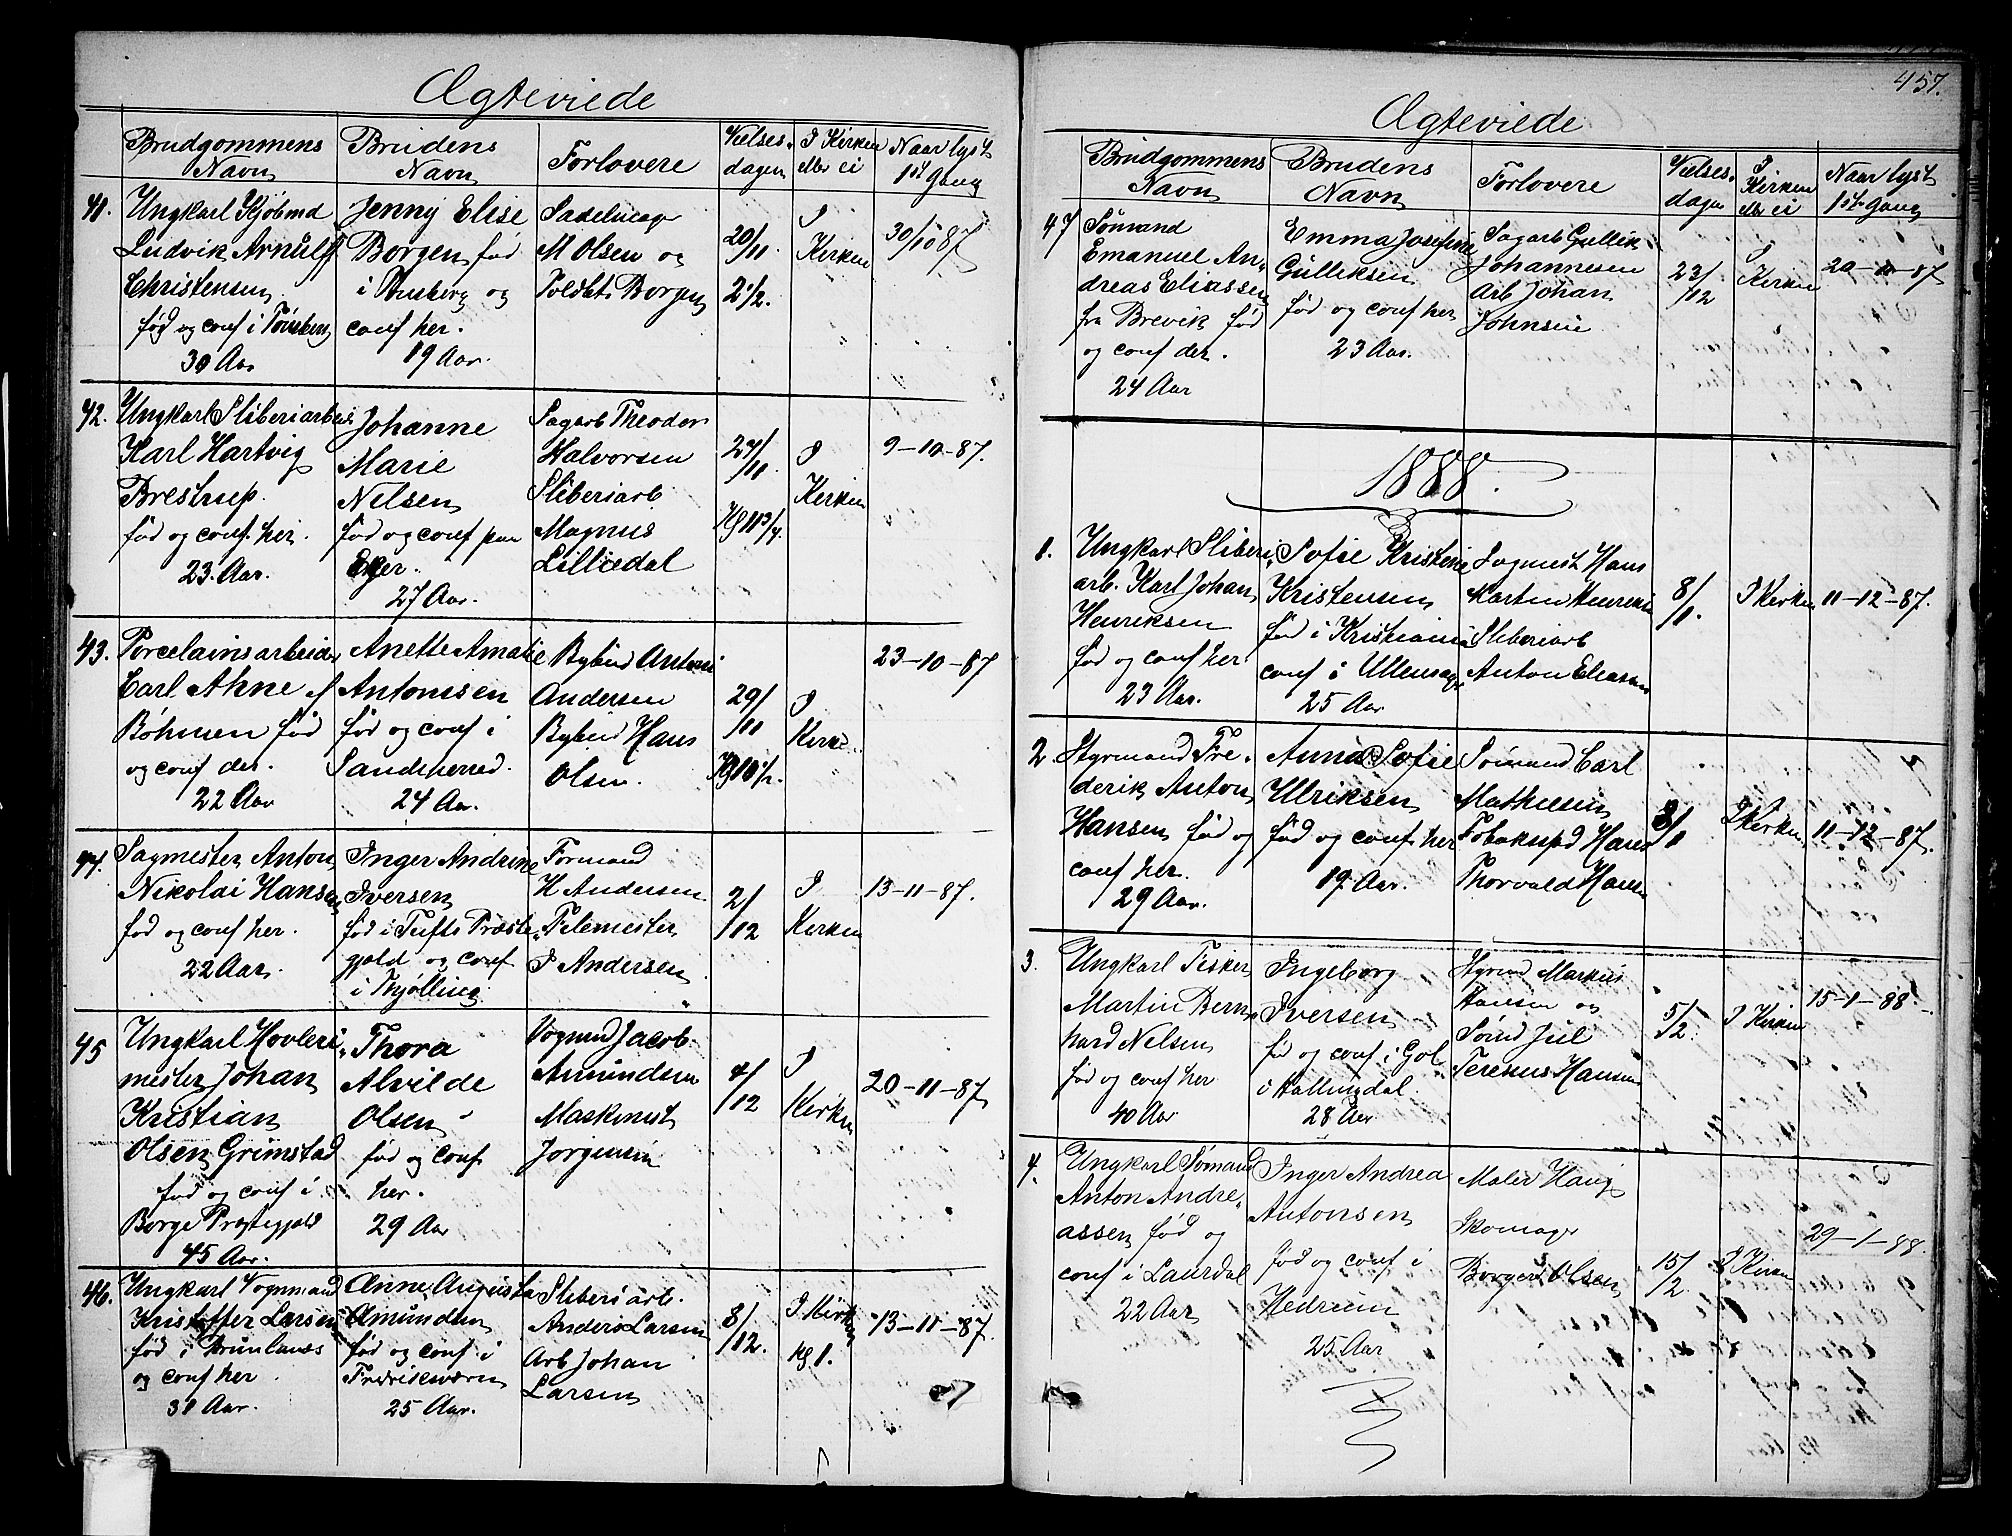 Ægteviede
Brudgommens Navn
Brudens Navn
Forlovere
Vielses-dagen
I Kirken eller ei
Naar lyst 1st Gang
41.
Ungkarl Kjöbmd
Ludvik Arnulf
Christensen
fød og conf i Tønsberg
30 Aar
Jenny Elise
Borgen fød
i Tønsberg og
conf her.
19 Aar.
Sadelmager
M Olsen og
Toldbt. Borgen
20/11.
2 1/2.
I
Kirken
30/10 87
42.
Ungkarl Sliberiarbeid
Karl Hartvig
Brestrup.
fød og conf. her.
23 Aar.
Johanne
Marie
Nelsen
fød og conf paa
Eger.
27 Aar.
Sagarb Theodor
Halvorsen
Sliberiarb
Magnus
Lilliedal
27/11
Kl 11 3/4.
I
Kirken
9-10-87.
43.
Porcelainsarbeider
Carl Ahne af
Böhmen fød
og conf der.
22 Aar
Anette Amalie
Antonssen
fød og conf i
Sandeherred.
24 Aar.
Bybud Antoni
Andersen
Bybud Hans
Olsen.
29/11
Kl 10 1/2.
I
Kirke
23-10-87
44.
Sagmester Anton
Nikolai Hansen
fød og conf her.
22 Aar.
Inger Andrine
Iversen
fød i Tufts Præste
gjeld og conf
i Thjølling
Formand
H Andersen
Filemester
I Andersen
2/12
I
Kirken
13-11-87.
45
Ungkarl Hovleri
mester Johan
Kristian
Olsen Grimstad
fød og conf i
Borge Præstegjeld
45 Aar.
Thora
Alvilde
Olsen
fød og conf
her.
29 Aar
Vognmd Jacob
Amundsen
Maskinist
Jørgensen
4/12
I
Kirken
20-11-87
46.
Ungkarl Vognmand
Kristoffer Larsen
fød i Brunlanæs
og conf her
31 Aar.
Anne Augusta
Amundsen
fød og conf i
Fredriksværn
25 Aar.
Sliberiarb.
Anders Larsen
Arb Johan
Larsen
8/12.
I Kirken
Kl 1.
13-11-87.
457.
Ægteviede
Brudgommens Navn
Brudens Navn
Forlovere
Vielses-dagen
I Kirken eller ei
Naar lyst 1ste Gang
47
Sømand
Emanuel An-
dreas Eliassen
fra Brevik fød
og conf der.
24 Aar
Emma Josefine
Gulliksen
fød og conf her
23 Aar.
Sagarb Gullik
Johannesen
Arb Johan
Johnsen
23/12
I
Kirken
20-11-87
1888.
1.
Ungkarl Sliberi
arb. Karl Johan
Henriksen
fød og conf her
23 Aar.
Sofie Kristine
Kristensen
fød i Kristiania
conf i Ullensager
25 Aar
Sagmest Hans
Martin Henriksen
Sliberiarb
Anton Eliassen
8/1.
I Kirken
11-12-87.
2.
Styrmand Fre-
derik Anton
Hansen fød og
conf her.
29 Aar.
Anna Sofie
Ulriksen
fød og conf her
19 Aar.
Sømand Carl
Mathiesen
Tobaksspd Hans
Thorvald Hansen
8/1
I Kirken
11-12-87.
3.
Ungkarl Fisker
Martin Bern
hard Nelsen
fød og conf her
40 Aar
Ingeborg
Iversen
fød og conf i Gol
i Hallingdal.
28 Aar
Styrmd Markus
Hansen og
Sømd Juel
Terenus Hansen
5/2.
I Kirken
15-1-88.
4.
Ungkarl Sømand
Anton Andre-
assen fød og
conf i Laurdal
22 Aar
Inger Andrea
Antonsen
fød og conf i
Hedrum
25 Aar
Maler Haug
Skomager
Borger Olsen
15/2
I Kirken
29-1-88.